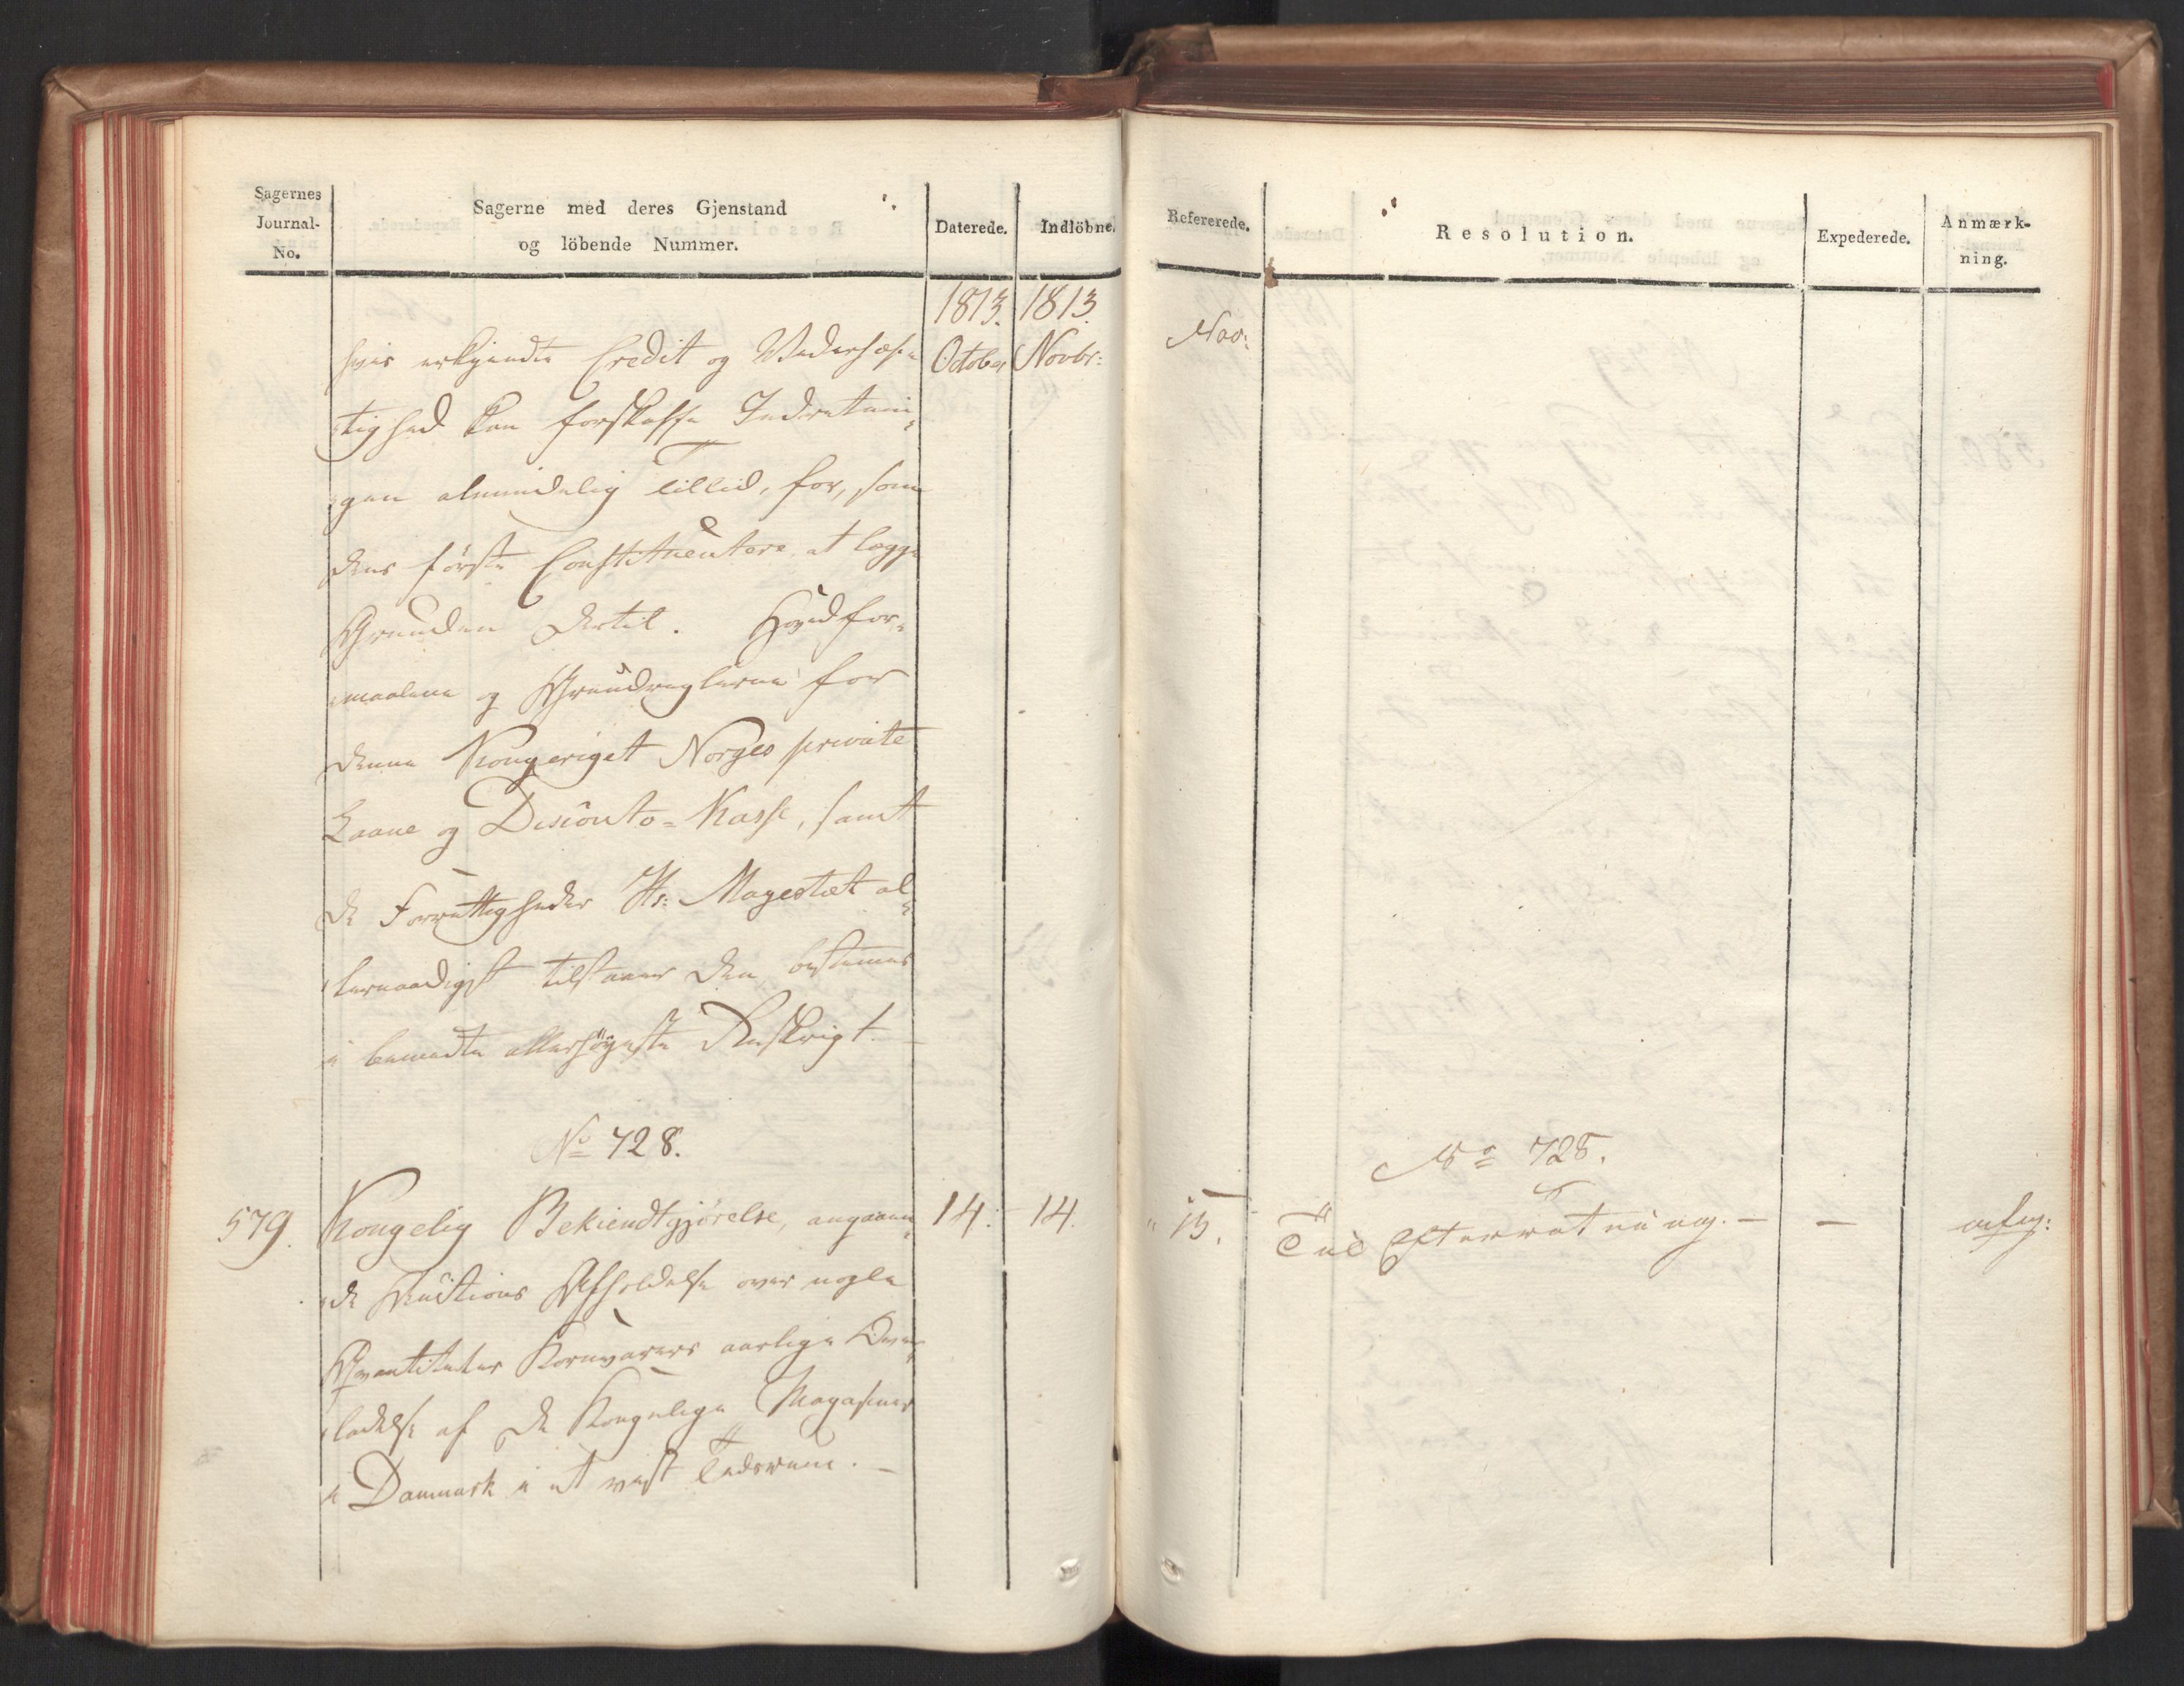 Sagernes
Journal-
No.
Sagerne med deres Gjenstand
og löbende Nummer.
Daterede.
Indlöbne.
1813. 1813.
October Novbr:
hvis erkjendte Credit og Vederhæf-
tighed kan forskaffe Indretnin-
gen almindelig Tillid, for, som
dens første Constituentere at lægge
Grunden dertil. Hovedfor-
maalene og Grundreglerne for
denne Kongeriget Norges private
Laane og Disconto-Kasse, samt
de Forrettigheder Hs: Magestæt al-
lernaadigst tilstaaer den, bestemmes
i bemeldte allerhöyeste Reskript. -
No 728.
579. Kongelig Bekiendtgjörelse, angaaen- 14. - 14.
de Auctions Afholdelse over nogle
Qvantiteter Kornvarers aarlige Over-
ladelse af de Kongelige Magasiner
i Danmark i et vist Tidsrum. -
Refererede.
Resolution.
Expederede.
Anmærk-
ning.
Nov:
No 728.
" 15. Til Efterretning. - -